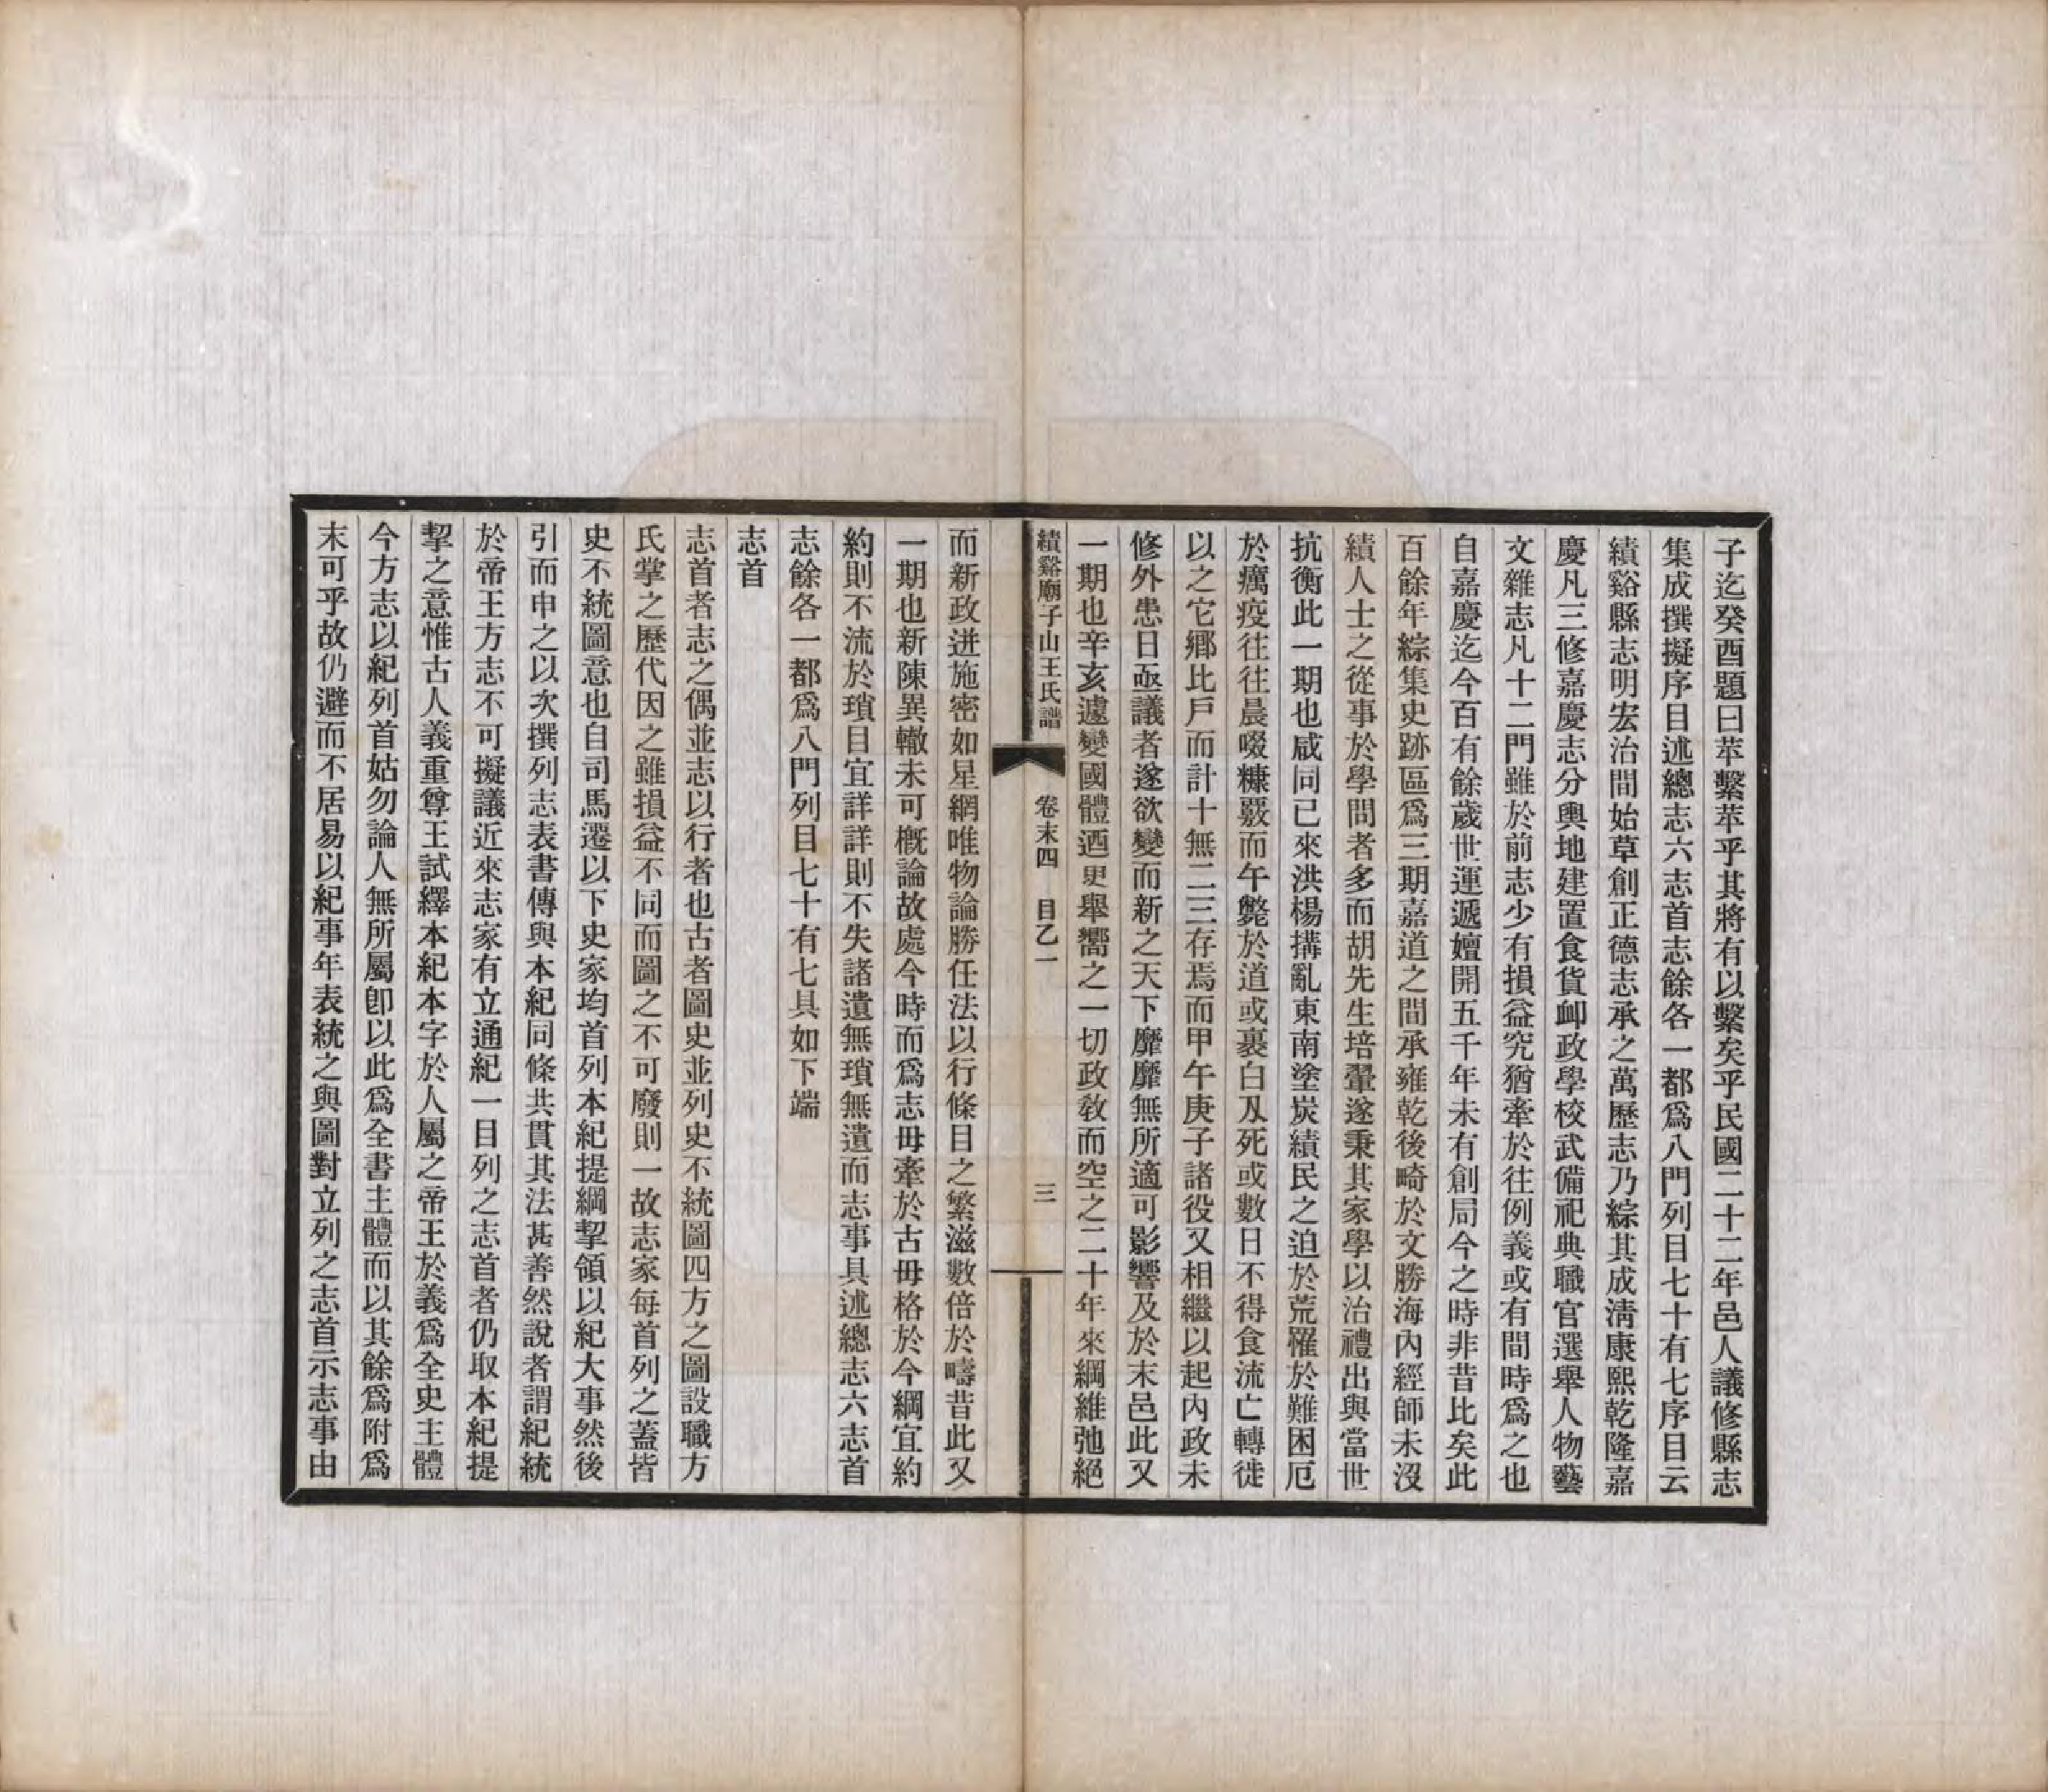 子迄癸酉題曰苹繫苹乎其將有以繫矣乎民國二十二年邑人議修縣志
集成撰擬序目述總志六志首志餘各一都爲八門列目七十有七序目云
績谿縣志明宏治間始草創正德志承之萬歷志乃綜其成淸康熙乾隆嘉
慶凡三修嘉慶志分輿地建置食貨卹政學校武備祀典職官選舉人物藝
文雜志凡十二門雖於前志少有損益究猶牽於往例義或有間時爲之也
自嘉慶迄今百有餘歲世運遞嬗開五千年未有創局今之時非昔比矣此
百餘年綜集史跡區爲三期嘉道之間承雍乾後畸於文勝海內經師未沒
績人士之從事於學問者多而胡先生培翬遂秉其家學以治禮出與當世
抗衡此一期也咸同已來洪楊搆亂東南塗炭績民之迫於荒罹於難困厄
於癘疫往往晨啜糠覈而午斃於道或裹白及死或數日不得食流亡轉徙
以之它鄕比戶而計十無二三存焉而甲午庚子諸役又相繼以起內政未
修外患日亟議者遂欲變而新之天下靡靡無所適可影響及於末邑此又
一期也辛亥遽變國體迺更舉嚮之一切政敎而空之二十年來綱維弛絕
績谿廟子山王氏譜 卷末四 目乙一 三
而新政迸施密如星網唯物論勝任法以行條目之繁滋數倍於疇昔此又
一期也新陳異轍未可槪論故處今時而爲志毋牽於古毋格於今綱宜約
約則不流於瑣目宜詳詳則不失諸遺無瑣無遺而志事具述總志六志首
志餘各一都爲八門列目七十有七具如下端
志首
志首者志之偶並志以行者也古者圖史並列史不統圖四方之圖設職方
氏掌之歷代因之雖損益不同而圖之不可廢則一故志家每首列之蓋皆
史不統圖意也自司馬遷以下史家均首列本紀提綱挈領以紀大事然後
引而申之以次撰列志表書傳與本紀同條共貫其法甚善然說者謂紀統
於帝王方志不可擬議近來志家有立通紀一目列之志首者仍取本紀提
挈之意惟古人義重尊王試繹本紀本字於人屬之帝王於義爲全史主體
今方志以紀列首姑勿論人無所屬卽以此爲全書主體而以其餘爲附爲
末可乎故仍避而不居易以紀事年表統之與圖對立列之志首示志事由